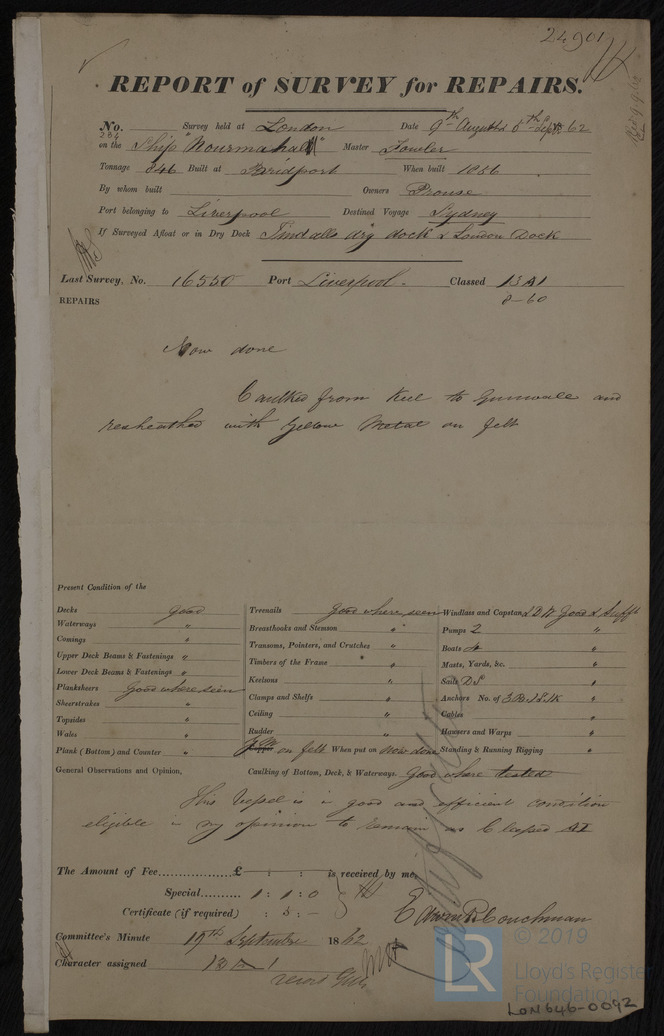 24901
REPORT of SURVEY for REPAIRS.
No. 284 Survey held at London Date 9th August & 5th Sept 62
on the Ship "Nourmahal" Master Fowler
Tonnage 846 Built at Bridport When built 1856
By whom built Owners Prouse
Port belonging to Liverpool Destined Voyage Sydney
If Surveyed Afloat or in Dry Dock Tindalls dry dock & London Dock
Last Survey, No. 16550 Port Liverpool. Classed 13 A1
8-60
REPAIRS
Now done
Caulked from Keel to Gunwale and
resheathed with Yellow Metal on felt
Present Condition of the
Decks good
Waterways "
Comings "
Upper Deck Beams & Fastenings "
Lower Deck Beams & Fastenings "
Planksheers Good where seen
Sheerstrakes "
Topsides "
Wales "
Plank (Bottom) and Counter "
Treenails good where seen
Breasthooks and Stemson "
Transoms, Pointers, and Crutches "
Timbers of the Frame "
Keelsons "
Clamps and Shelfs "
Ceiling "
Rudder "
Copper Y.M. on felt When put on now done
Windlass and Capstan Good & Sufft
Pumps 2 "
Boats 4 "
Masts, Yards, &c. "
Sails DS "
Anchors No. of 3B.1S.1K "
Cables "
Hawsers and Warps "
Standing & Running Rigging "
General Observations and Opinion, Caulking of Bottom, Deck, & Waterways Good where tested
This Vessel is in good and efficient condition
eligible in my opinion to remain as Classed A1
The Amount of Fee £ : : is received by me,
Special 1 : 1 : 0
Certificate (if required) : 5 : -
Edward R Couchman
Committee's Minute 19th September 1862
Character assigned 13 A 1
© 2019
LR
Lloyd's Register
Foundation
LON646-0092